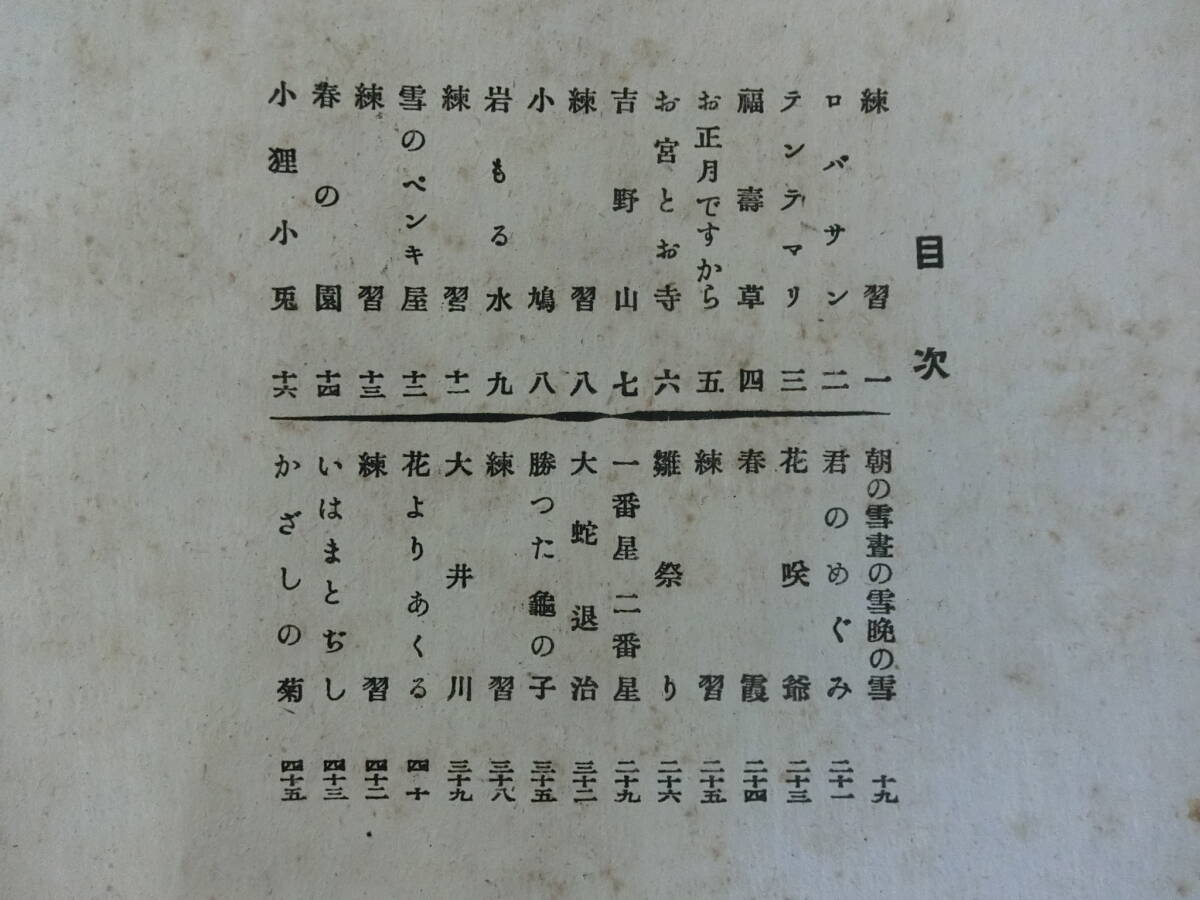 目次
練習 一
ロバサン 二
テンテマリ 三
福壽草 四
お正月ですから 五
お宮とお寺 六
吉野山 七
練習 八
小鳩 八
岩もる水 九
練習 十一
雪のペンキ屋 十二
練習 十三
春の園 十四
小狸小兎 十六
朝の雪晝の雪晩の雪 十九
君のめぐみ 二十一
花咲爺 二十三
春霞 二十四
練習 二十五
雛祭り 二十六
一番星二番星 二十九
大蛇退治 三十二
勝つた龜の子 三十五
練習 三十八
大井川 三十九
花よりあくる 四十
練習 四十二
いはまとぢし 四十三
かざしの菊 四十五